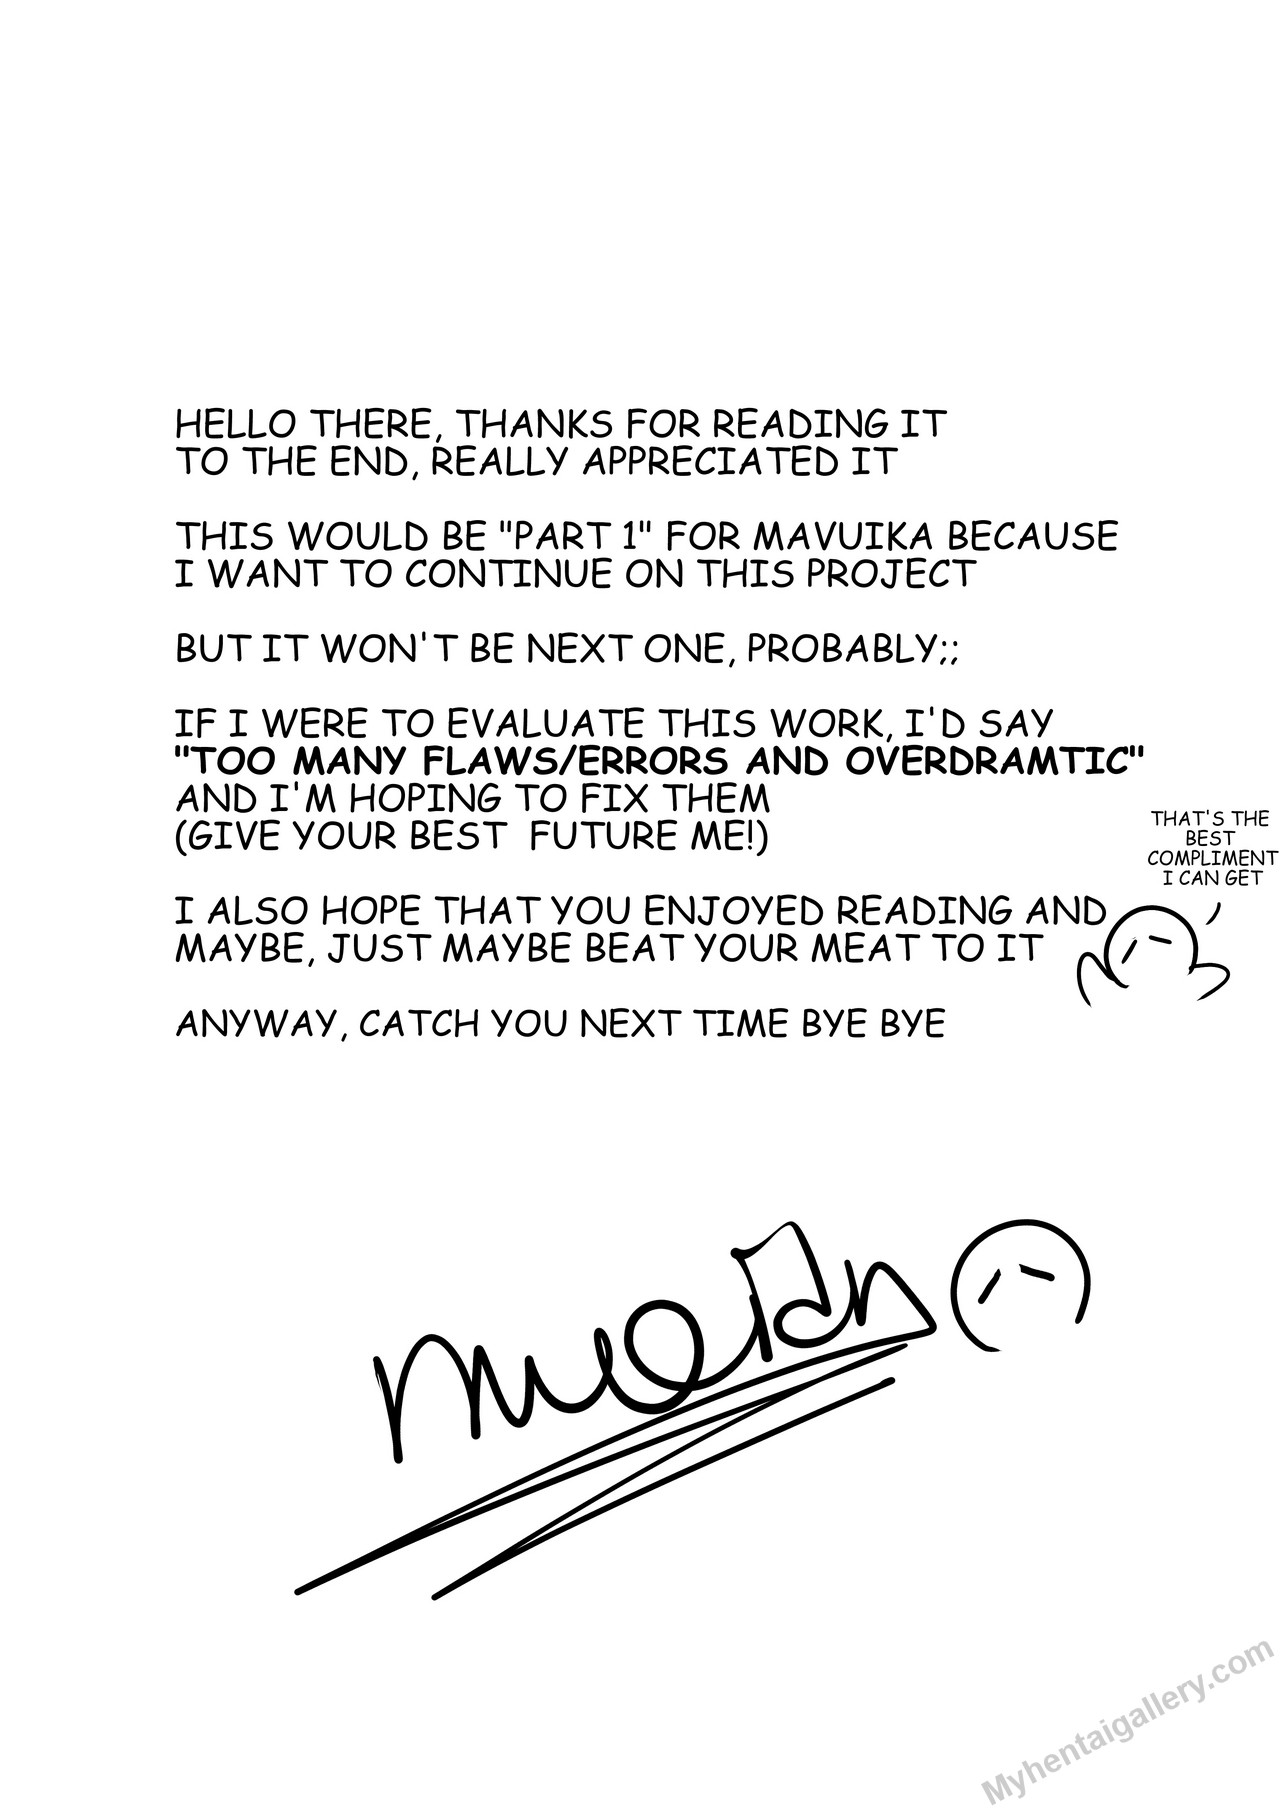 HELLO THERE, THANKS FOR READING IT
TO THE END, REALLY APPRECIATED IT
THIS WOULD BE "PART 1" FOR MAVUIKA BECAUSE
I WANT TO CONTINUE ON THIS PROJECT
BUT IT WON'T BE NEXT ONE, PROBABLY;;
IF I WERE TO EVALUATE THIS WORK, I'D SAY
"TOO MANY FLAWS/ERRORS AND OVERDRAMTIC"
AND I'M HOPING TO FIX THEM
(GIVE YOUR BEST FUTURE ME!)
THAT'S THE
BEST
COMPLIMENT
I CAN GET
I ALSO HOPE THAT YOU ENJOYED READING AND
MAYBE, JUST MAYBE BEAT YOUR MEAT TO IT
ANYWAY, CATCH YOU NEXT TIME BYE BYE
Myhentaigallery.com